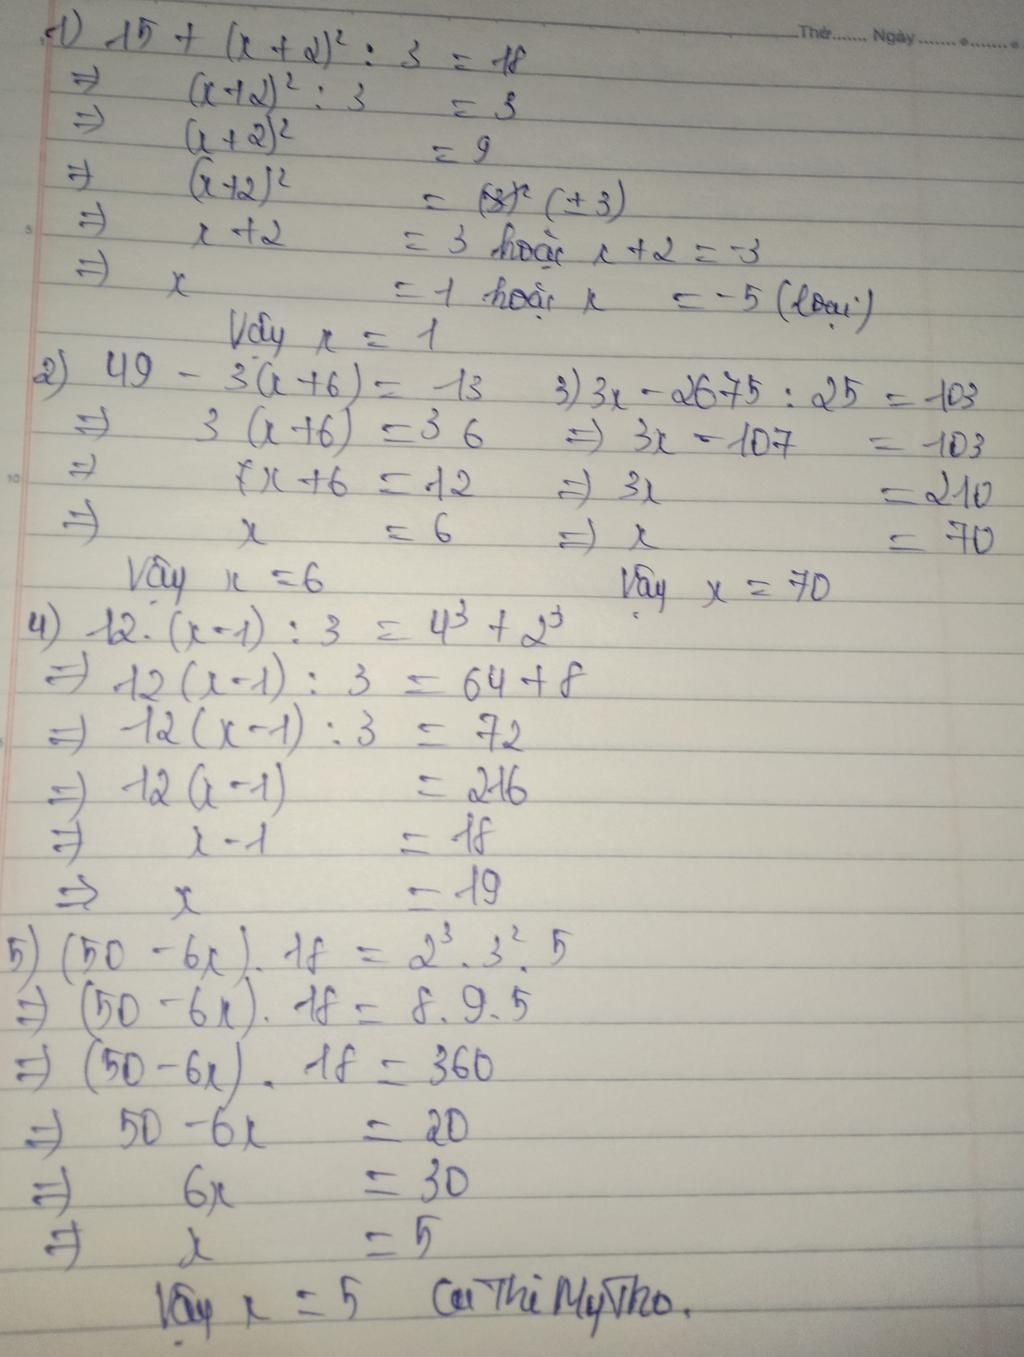 Thứ....... Ngày.................
1) 15 + (x + 2)² : 3 = 18
=> (x+2)² : 3 = 3
=> (x + 2)² = 9
=> (x+2)² = (3)² (±3)
=> x + 2 = 3 hoặc x + 2 = -3
=> x = 1 hoặc x = -5 (loại)
Vậy x = 1
2) 49 - 3(x+6) = 13
=> 3 (x+6) = 36
=> x + 6 = 12
=> x = 6
Vậy x = 6
3) 3x - 2675 : 25 = 103
=> 3x - 107 = 103
=> 3x = 210
=> x = 70
Vậy x = 70
4) 12. (x-1) : 3 = 4³ + 2³
=> 12 (x-1) : 3 = 64 + 8
=> 12 (x-1) : 3 = 72
=> 12 (x-1) = 216
=> x - 1 = 18
=> x = 19
5) (50 - 6x). 18 = 2³. 3². 5
=> (50 - 6x). 18 = 8. 9. 5
=> (50 - 6x). 18 = 360
=> 50 - 6x = 20
=> 6x = 30
=> x = 5
Vậy x = 5 Thi MyTho.
5
10